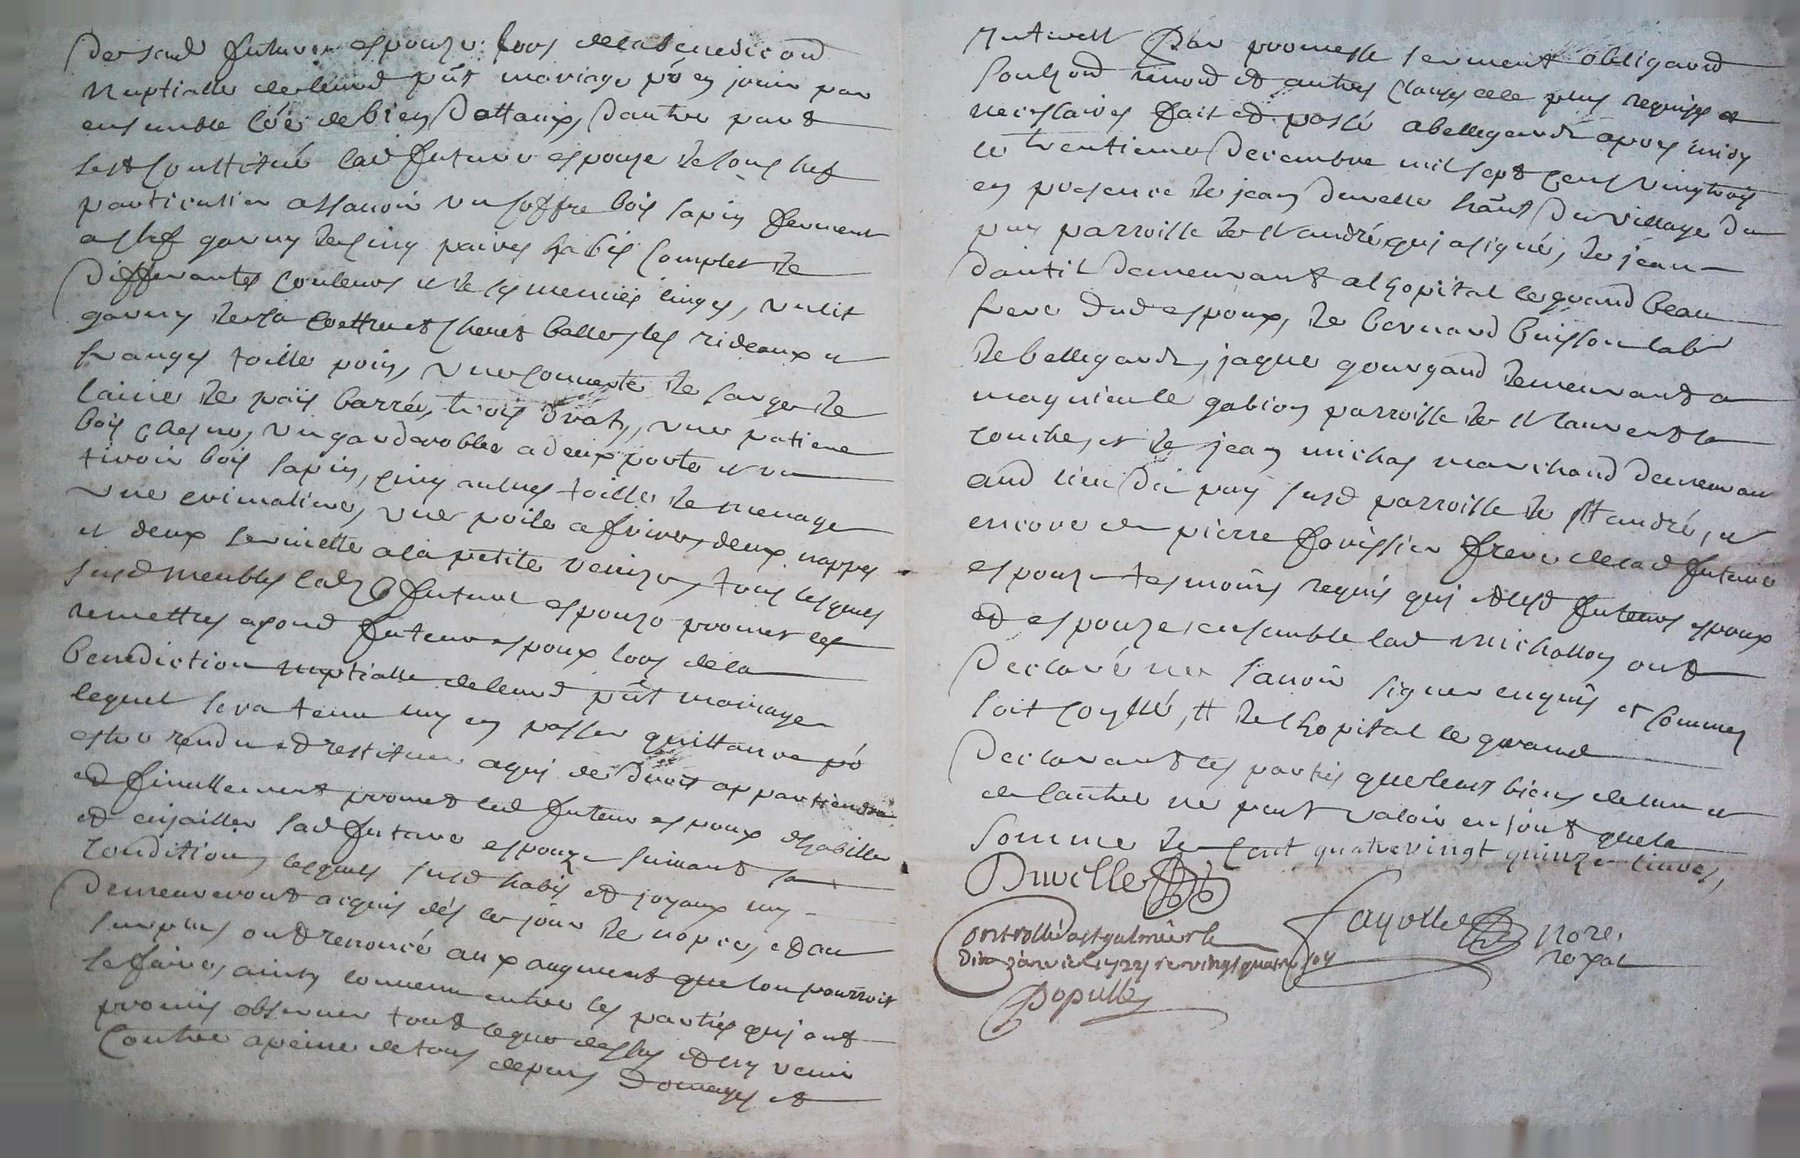 desd futurs espouze lors de la benediction
nuptialle de leurd pnt mariage po en jouir par
ensemble de bien dottaux, dautre part
sest constitué lad future espouze de son chef
particulier assavoir un coffre bois sapin fermant
a clef garny de cinq paires habis complet de
differantes couleurs et de ses menues linges, un lit
garny de sa coettre et chevet balles les rideaux et
franges toille poin, une couverte de sarge de
laine de païs barrée, trois drats, une patiere
bois chesne, un garderobbe a deux porte et un
tiroir bois sapin, cinq autres toille de menage
une crimaliere, une poile a frire, deux nappes
et deux serviette a la petite venize, tous lesquels
susd meubles lad future espouze promet les
remettre a sond futeur espoux lors de la
benediction nuptialle de leurd pnt mariage
lequel sera tenu luy en passer quittance po
estre rendu et restituer a qui de droit appartiendra
et finallement promet led futeur espoux dhabiller
et enjailler lad future espouze suivant sa
condition, lesquels susd habis et joyaux luy
demeureront acquis dés le jour de nopces, et au
surplus ont renoncé aux augment que lon pourroit
se faire, ainsy convenu entre les parties qui ont
promis observer tout le que dessus et ny venir
contre a peine de tous depens domages et
interest Par promesse serment obligaõn
soubzon renon et autres clauses de plus requises et
necessaires fait et passé a bellegarde apres midy
le trentieme Decembre mil sept cens vingt trois
en presence de jean duvelle habt du village du
puy parroisse de St andré qui a signé, de jean
dautil demeurant a lhopital le grand beau
frere dud espoux, de bernard buisson labr
de bellegarde, jaque gourgaud demeurant a
magnieu le gabion parroisse de St laurent la
conche, et de jean michas marchand demeurant
aud lieu du puy susd parroisse de St andré, et
encore de pierre forissier frere de lad future
espouze tesmoins requis qui et lesd futeurs espoux
et espouze, ensemble lad michallon ont
declaré ne sçavoir signer enquis et sommes
soit coyllé, # de lhopital le grand
Declarant les parties que leurs biens de lun et
de lautre ne peut valoir en joint que la
somme de cent quatre vingt quinze livres,
Duvelle
Fayolle nore.
royal
Controllé a st galmier le
dix janvier 1724 re vingt quatre sols
Populle